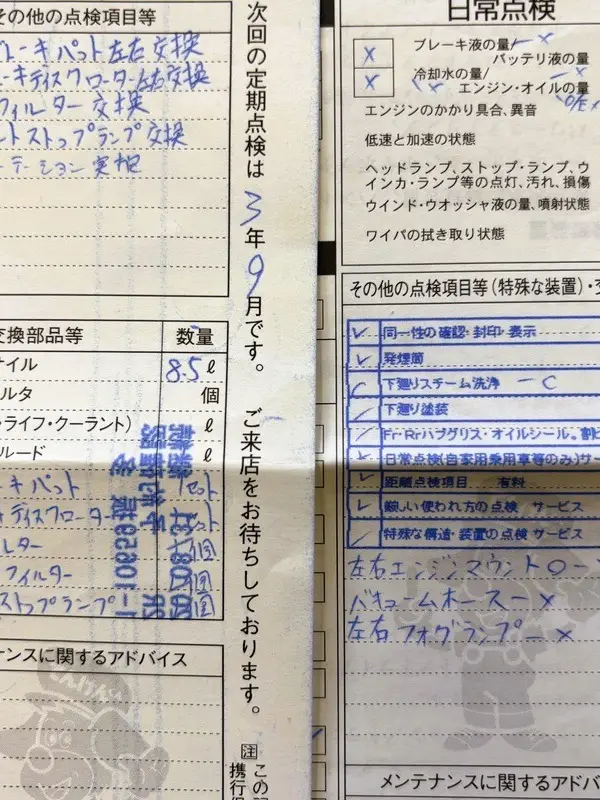 その他の点検項目等
ブレーキパット左右交換
ーキディスクローター左右交換
フィルター交換
ストップランプ交換
ーテーション実施
交換部品等 数量
オイル 8.5 ℓ
ルタ 個
・ライフ・クーラント) ℓ
ルード ℓ
ーキパット 1セット
ディスクローター
ルター 1個
フィルター
ストップランプ
テナンスに関するアドバイス
次回の定期点検は3年9月です。 ご来店をお待ちしております。
注 この
日常点検
X ブレーキ液の量/ーX
バッテリ液の量
X 冷却水の量/ーX
エンジン・オイルの量
エンジンのかかり具合、異音
低速と加速の状態
ヘッドランプ、ストップ・ランプ、ウ
インカ・ランプ等の点灯、汚れ、損傷
ウインド・ウオッシャ液の量、噴射状態
ワイパの拭き取り状態
その他の点検項目等(特殊な装置)・交
✓ 同一性の確認・封印・表示
✓ 発煙筒
✓ 下廻りスチーム洗浄 ーC
✓ 下廻り塗装
✓ Fr・Rrハブグリス・オイルシール。割ピ
✓ 日常点検(自家用乗用車等のみ)サー
✓ 距離点検項目 有料
✓ 厳しい使われ方の点検 サービス
✓ 特殊な構造・装置の点検 サービス
左右エンジンマウントOー
バキュームホースーX
左右フォグランプーX
メンテナンスに関するアドバ